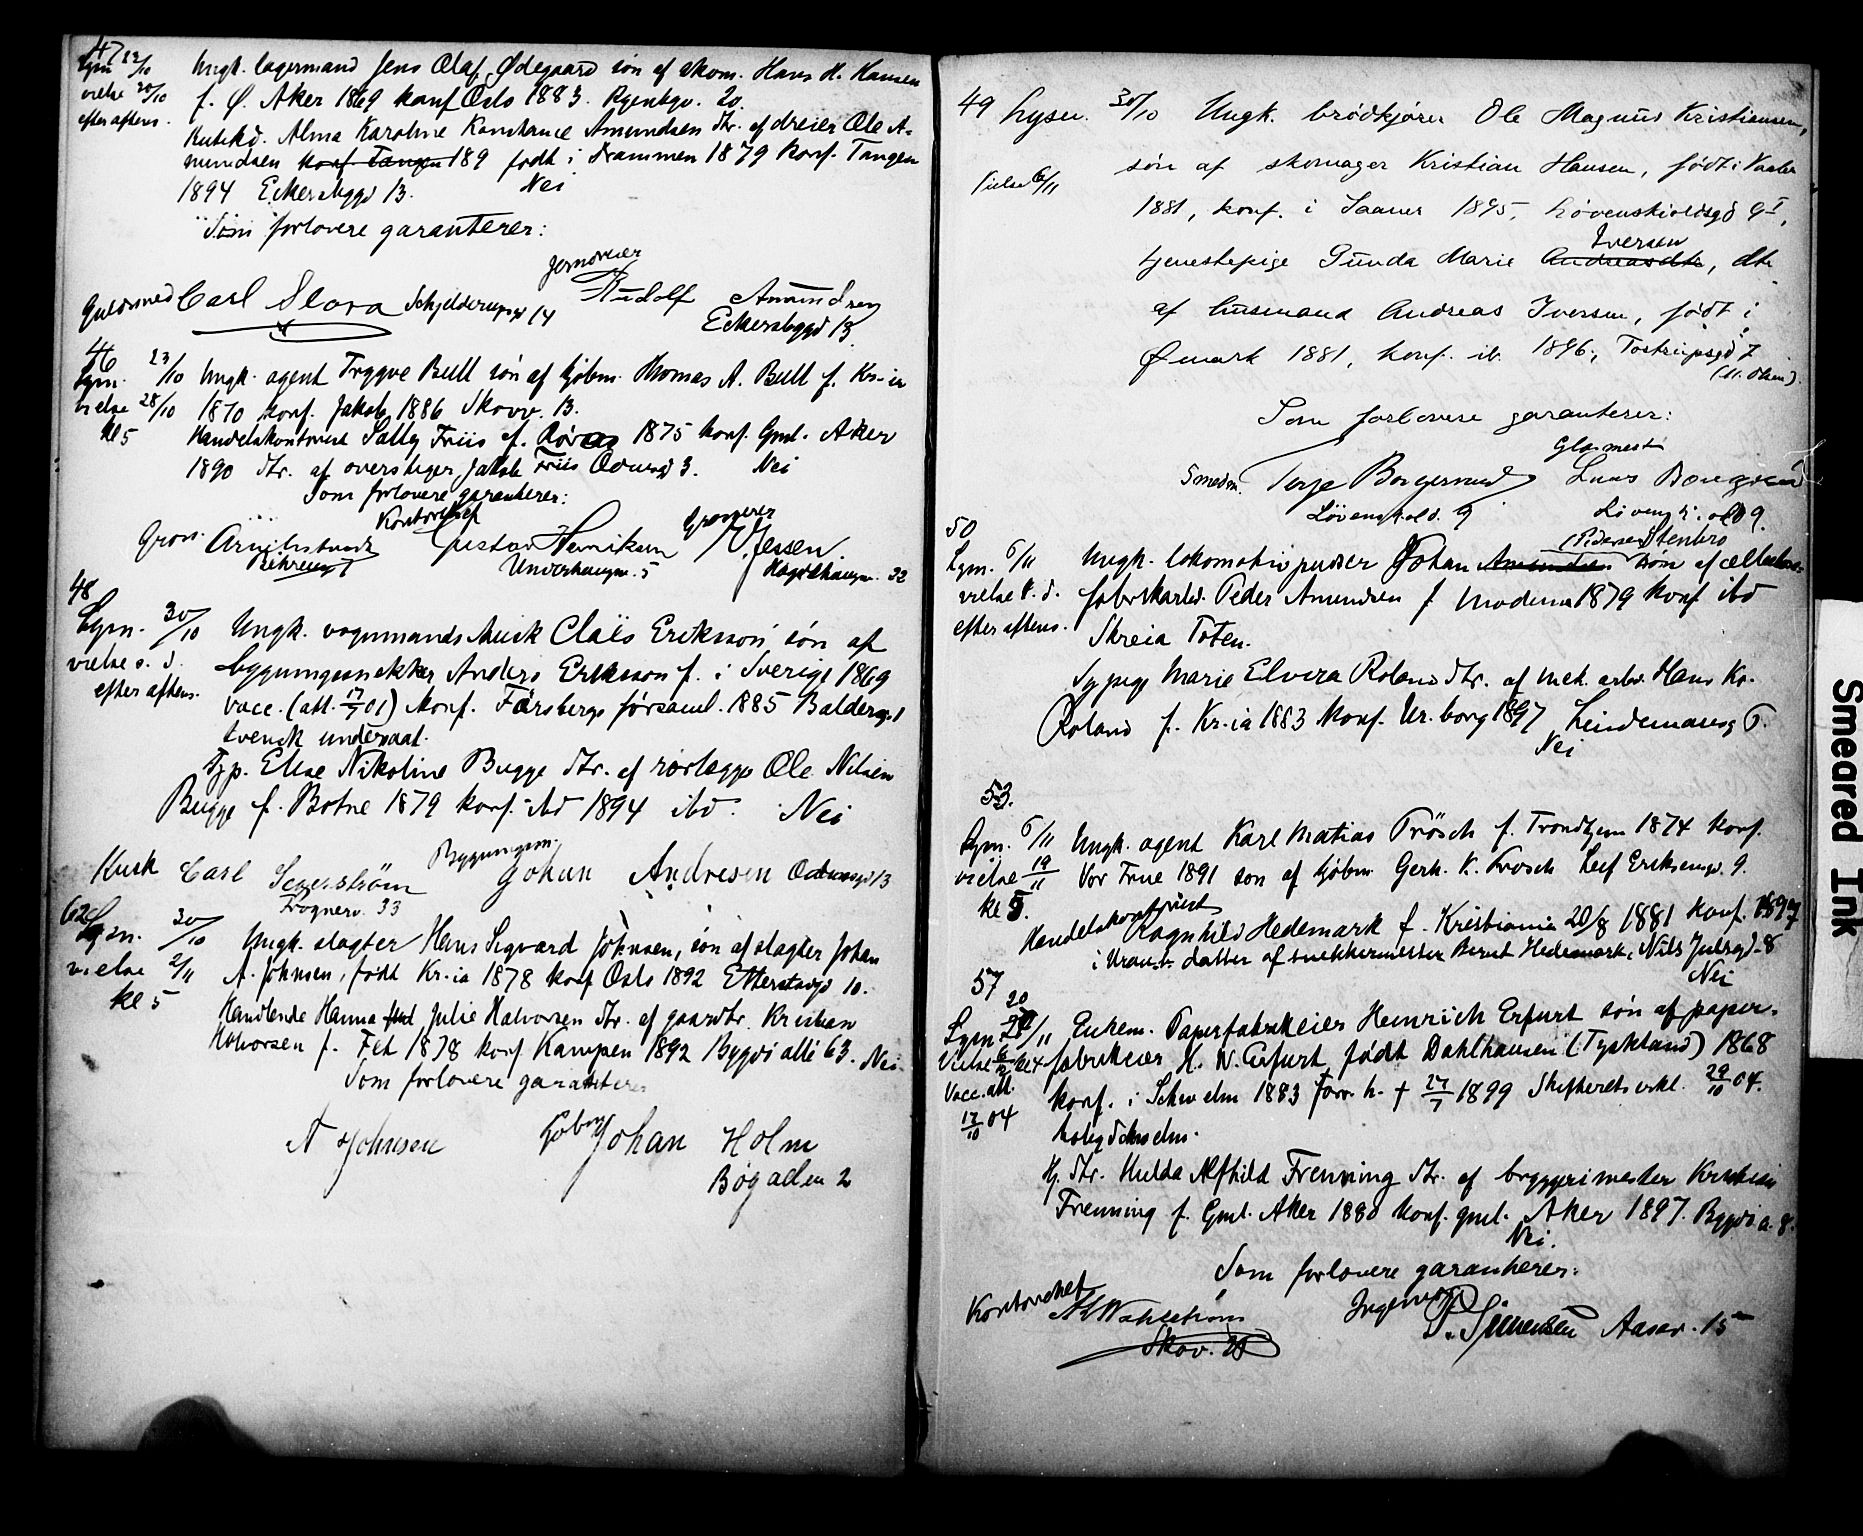 47
Lysn 22/10 Ungk. lagermand Jens Olaf Ødegaard søn af skom. Hans H. Hansen
vielse 30/10 f. Ø. Aker 1869 konf Oslo 1883. 20.
efter aftens. Alma Karoline Konstance Amundsen dtr. af dreier Ole A-
mundsen konf Tangen 189 født i Drammen 1879 konf. Tangen
1894 Eckersbgd 13. Nei
Som forlovere garanterer:
Jerndreier
Guldsmed Carl Slora Schjelderupsgd 14 Rudolf Amundsen
Eckersbggd 13
46
Lysn. 23/10 Ungk. agent Tryggve Bull søn af kjøbm. Thomas A. Bull f. Kr-ia
vielse 28/10 1870 konf. Jakob 1886 Skovv. 13.
kl 5 Handelskontorist Sally Friis f. Røros 1875 konf. Gml. Aker
1890 dtr. af overstiger Jakob Friis Odinsgd 3. Nei
Som forlovere garanterer:
Kontorchef Grosserer
Gros. Gustav Henriksen Jessen.
Underhaugsv. 5 Hægdehaugsv. 32
48
Lysn. 30/10 Ungk. vognmandskusk Claës Eriksson søn af
vielse s. d. bygningssnekker Anders Eriksson f. i Sverige 1869
efter aftens. vacc. (att. 17/7 01) Konf. Färsbergs församl. 1885 Baldersgd 1
svensk undersaat.
Syp. Elise Nikoline Bugge dtr. af rørlægger Ole Nilsen
Bugge f. Botne 1879 konf. ibd 1894 ibd. Nei
Bygningssn.
Kusk Carl Segerström Johan Andresen Odinsgd 13
Frognerv. 33
62
Lysn. 30/10 Ungk. slagter Hans Sigvard Johnsen, søn af slagter Johan
vielse 2/11 A. Johnsen, født Kr.ia 1878 konf Oslo 1892 Etterstadgd 10.
kl 5 Handlende Hanna Julie Halvorsen dtr. af gaardbr. Kristian
Halvorsen f. Fet 1878 konf Kampen 1892 Bygdø allé 63. Nei.
Som forlovere garanterer
A Johnsen Johan Holm
Bøgaden 2
49 Lysn. 30/10 Ungk. brødkjører Ole Magnus Kristiansen,
Vielse 6/11 søn af skomager Kristian Hansen, født i Vaaler
1881, konf. i Saaner 1895, Løvenskioldsgd 9 I,
Iversen
tjenestepige Gunda Marie Andreasdtr, dtr
af husmand Andreas Iversen, født i
Ømark 1881, konf. ib. 1896, Tostrupsgd 7
(M. Olsen).
Som forlovere garanterer:
Glasmester
Smedm. Terje Borgersrud Lars Borgersrud
Løvenskiold. 9 Løvenskiold 9.
50
Pedersen Stenbro
Lysn. 6/11 Ungk. lokomotivpudser Johan Amundsen søn af celluløse-
vielse s. d. fabrikarbd. Peder Amundsen f. Modum 1879 konf ibd
efter aftens. Skreia Toten.
Sypige Marie Elvira Roland dtr. af mek. arbd. Hans Kr.
Roland f. Kr.ia 1883 konf. Ur.borg 1897 Lindemansg 5.
Nei
53.
Lysn. 6/11 Ungk. agent Karl Matias Frösch f. Trondhjem 1874 konf.
vielse 19/11 Vor Frue 1891 søn af kjøbm. Gerh. K. Frosch Leif Eriksensgd. 9.
kl 5. Handelskontorist Ragnhild Hedemark f. Kristiania 20/8 1881 konf. 1897
i Uran.b. datter af snekkermester Bernt Hedemark, Nils Juelsgd. 8
Nei
57
Lysn 20/11 Enkem. Papirfabrikeier Heinrich Erfurt søn af papir-
Vielse 6/12 fabrikeier H. W. Erfurt, født Dahlhausen (Tyskland) 1868
Vacc. att. 17/10 04 konf. i Schwelm 1883 forr. h. † 27/7 1899 Skifterets erkl. 29/10 04.
bolig Schwelm.
Hj. dtr. Hulda Alfhild Frenning dtr. af bryggerimester Kristian
Frenning f. Gml. Aker 1880 konf. gml. Aker 1897. Bygdø a. 8.
Nei.
Som forlovere garanterer:
Kontorchef A Wahlstrøm Ingeniør S. Simensen Aasav. 15
Skov. 28
Smeared Ink